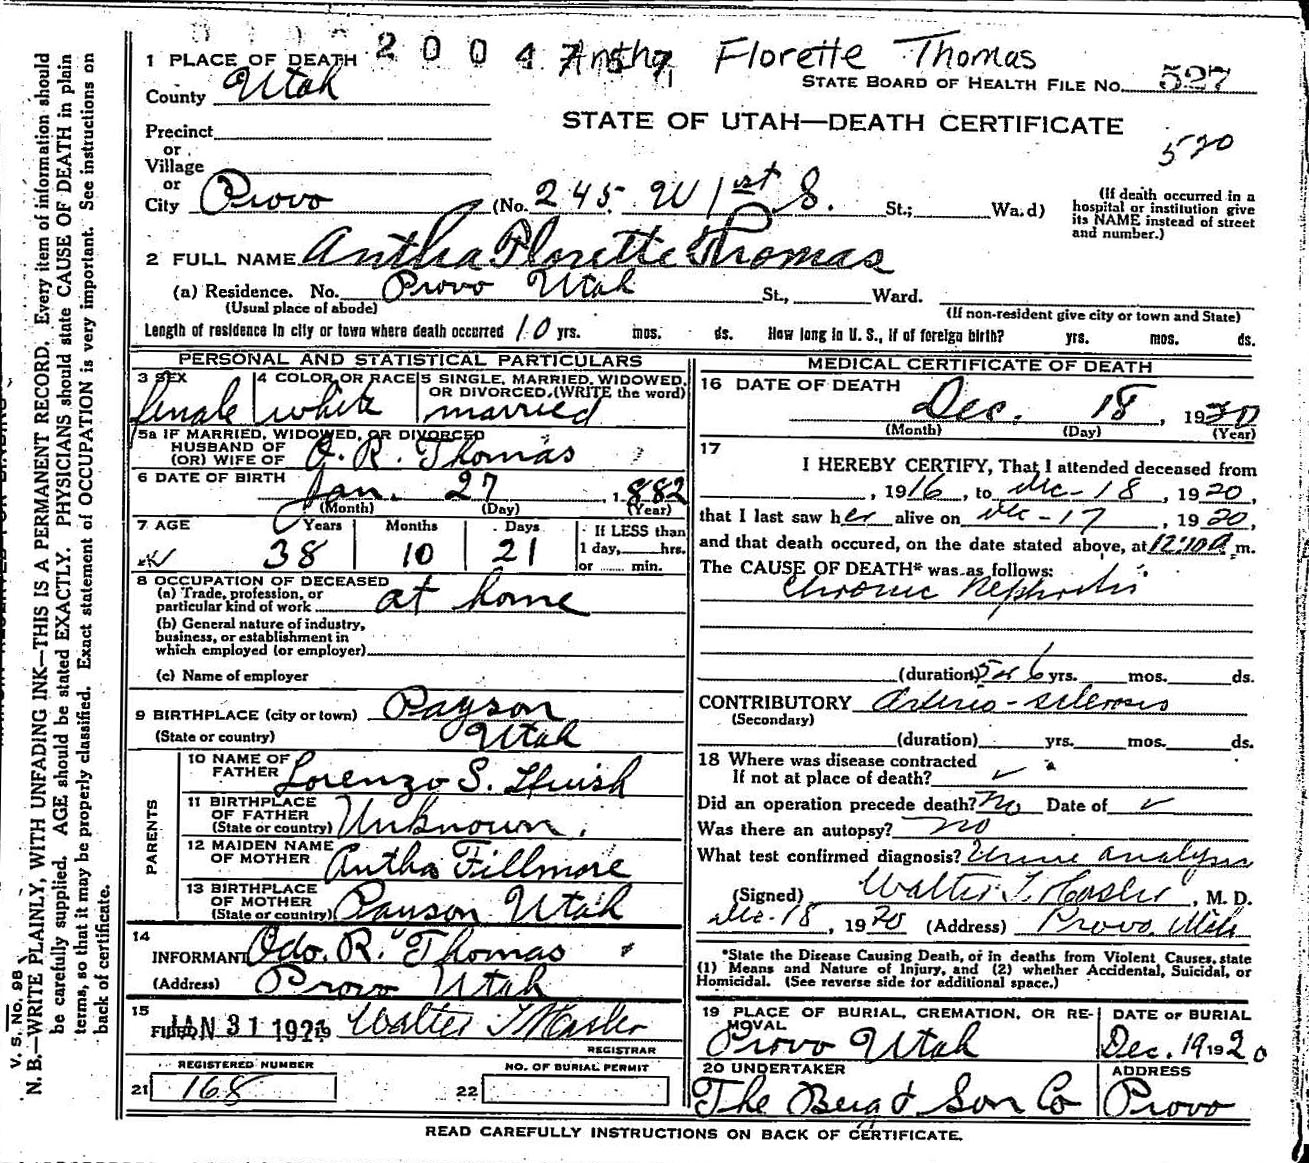 2 0 0 4 7 5 7 Antha Florette Thomas
1 PLACE OF DEATH
STATE BOARD OF HEALTH FILE NO. 527
County Utah
STATE OF UTAH—DEATH CERTIFICATE
520
Precinct
or
Village
or
City Provo (No. 245 W 1st S. St.; Wa.d)
(If death occurred in a hospital or institution give its NAME instead of street and number.)
2 FULL NAME Antha Florette Thomas
(a) Residence. No. Provo Utah St., Ward.
(Usual place of abode) (If non-resident give city or town and State)
Length of residence in city or town where death occurred 10 yrs. mos. ds. How long in U. S., if of foreign birth? yrs. mos. ds.
PERSONAL AND STATISTICAL PARTICULARS
3 SEX female
4 COLOR OR RACE white
5 SINGLE, MARRIED, WIDOWED, OR DIVORCED, (WRITE the word) married
5a IF MARRIED, WIDOWED, OR DIVORCED
HUSBAND OF
(OR) WIFE OF O. R. Thomas
6 DATE OF BIRTH Jan. 27, 1882
(Month) (Day) (Year)
7 AGE Years Months Days If LESS than
38 10 21 1 day, hrs.
or min.
8 OCCUPATION OF DECEASED
(a) Trade, profession, or
particular kind of work at home
(b) General nature of industry,
business, or establishment in
which employed (or employer)
(c) Name of employer
9 BIRTHPLACE (city or town) Payson
(State or country) Utah
PARENTS
10 NAME OF
FATHER Lorenzo S. Huish
11 BIRTHPLACE
OF FATHER
(State or country) Unknown.
12 MAIDEN NAME
OF MOTHER Antha Fillmore
13 BIRTHPLACE
OF MOTHER
(State or country) Payson Utah
14
INFORMANT Odo. R. Thomas
(Address) Provo Utah
15
FILED JAN 31 1921 Walter T Hasler
REGISTRAR
REGISTERED NUMBER
21 168
NO. OF BURIAL PERMIT
22
MEDICAL CERTIFICATE OF DEATH
16 DATE OF DEATH
Dec. 18, 1920
(Month) (Day) (Year)
17
I HEREBY CERTIFY, That I attended deceased from
, 1916, to Dec-18, 1920,
that I last saw her alive on Dec-17, 1920,
and that death occured, on the date stated above, at 12:10 a.m.
The CAUSE OF DEATH* was as follows:
Chronic Nephritis
(duration) 5 or 6 yrs. mos. ds.
CONTRIBUTORY Arterio-sclerosis
(Secondary)
(duration) yrs. mos. ds.
18 Where was disease contracted
If not at place of death? ✓
Did an operation precede death? No Date of ✓
Was there an autopsy? no
What test confirmed diagnosis? Urine analysis
(Signed) Walter T. Hasler, M. D.
Dec-18, 1920 (Address) Provo Utah
*State the Disease Causing Death, or in deaths from Violent Causes, state
(1) Means and Nature of Injury, and (2) whether Accidental, Suicidal, or
Homicidal. (See reverse side for additional space.)
19 PLACE OF BURIAL, CREMATION, OR RE-
MOVAL
Provo Utah
DATE OF BURIAL
Dec. 19 1920
20 UNDERTAKER
The Berg & Son Co
ADDRESS
Provo
READ CAREFULLY INSTRUCTIONS ON BACK OF CERTIFICATE.
V. S. No. 98
N. B.—WRITE PLAINLY, WITH UNFADING INK—THIS IS A PERMANENT RECORD. Every item of information should
be carefully supplied. AGE should be stated EXACTLY. PHYSICIANS should state CAUSE OF DEATH in plain
terms, so that it may be properly classified. Exact statement of OCCUPATION is very important. See instructions on
back of certificate.